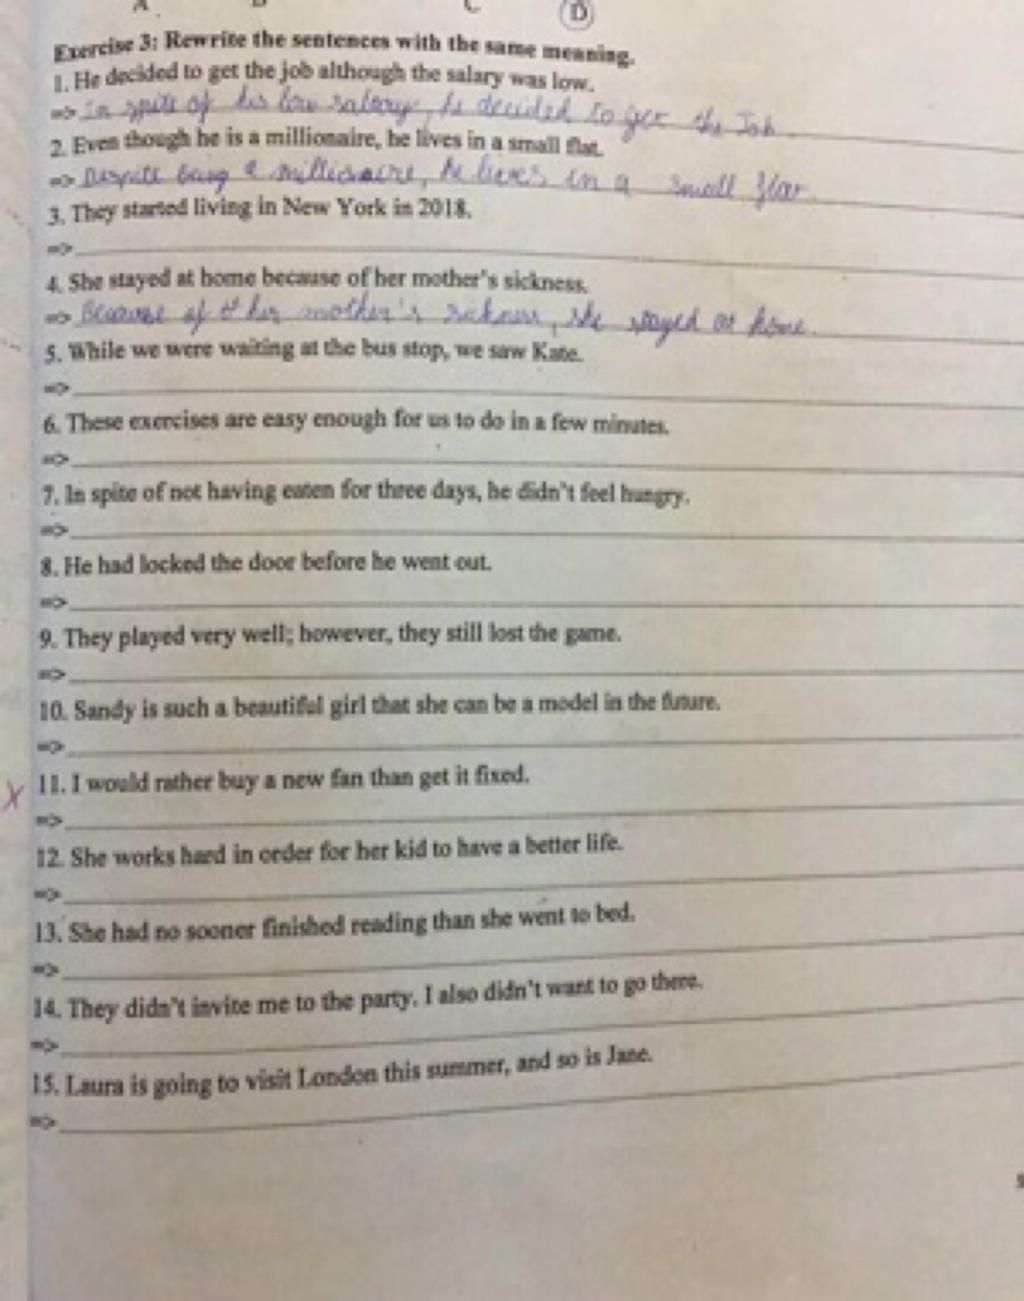 A. B C D
Exercise 3: Rewrite the sentences with the same meaning.
1. He decided to get the job although the salary was low.
=> In spite of his low salary, he decided to get the Job
2. Even though he is a millionaire, he lives in a small flat.
=> Despite being a millionaire, he lives in a small flat.
3. They started living in New York in 2018.
=>
4. She stayed at home because of her mother's sickness.
=> Because of her mother's sickness, she stayed at home.
5. While we were waiting at the bus stop, we saw Kate.
=>
6. These exercises are easy enough for us to do in a few minutes.
=>
7. In spite of not having eaten for three days, he didn't feel hungry.
=>
8. He had locked the door before he went out.
=>
9. They played very well; however, they still lost the game.
=>
10. Sandy is such a beautiful girl that she can be a model in the future.
=>
11. I would rather buy a new fan than get it fixed.
=>
12. She works hard in order for her kid to have a better life.
=>
13. She had no sooner finished reading than she went to bed.
=>
14. They didn't invite me to the party. I also didn't want to go there.
=>
15. Laura is going to visit London this summer, and so is Jane.
=>